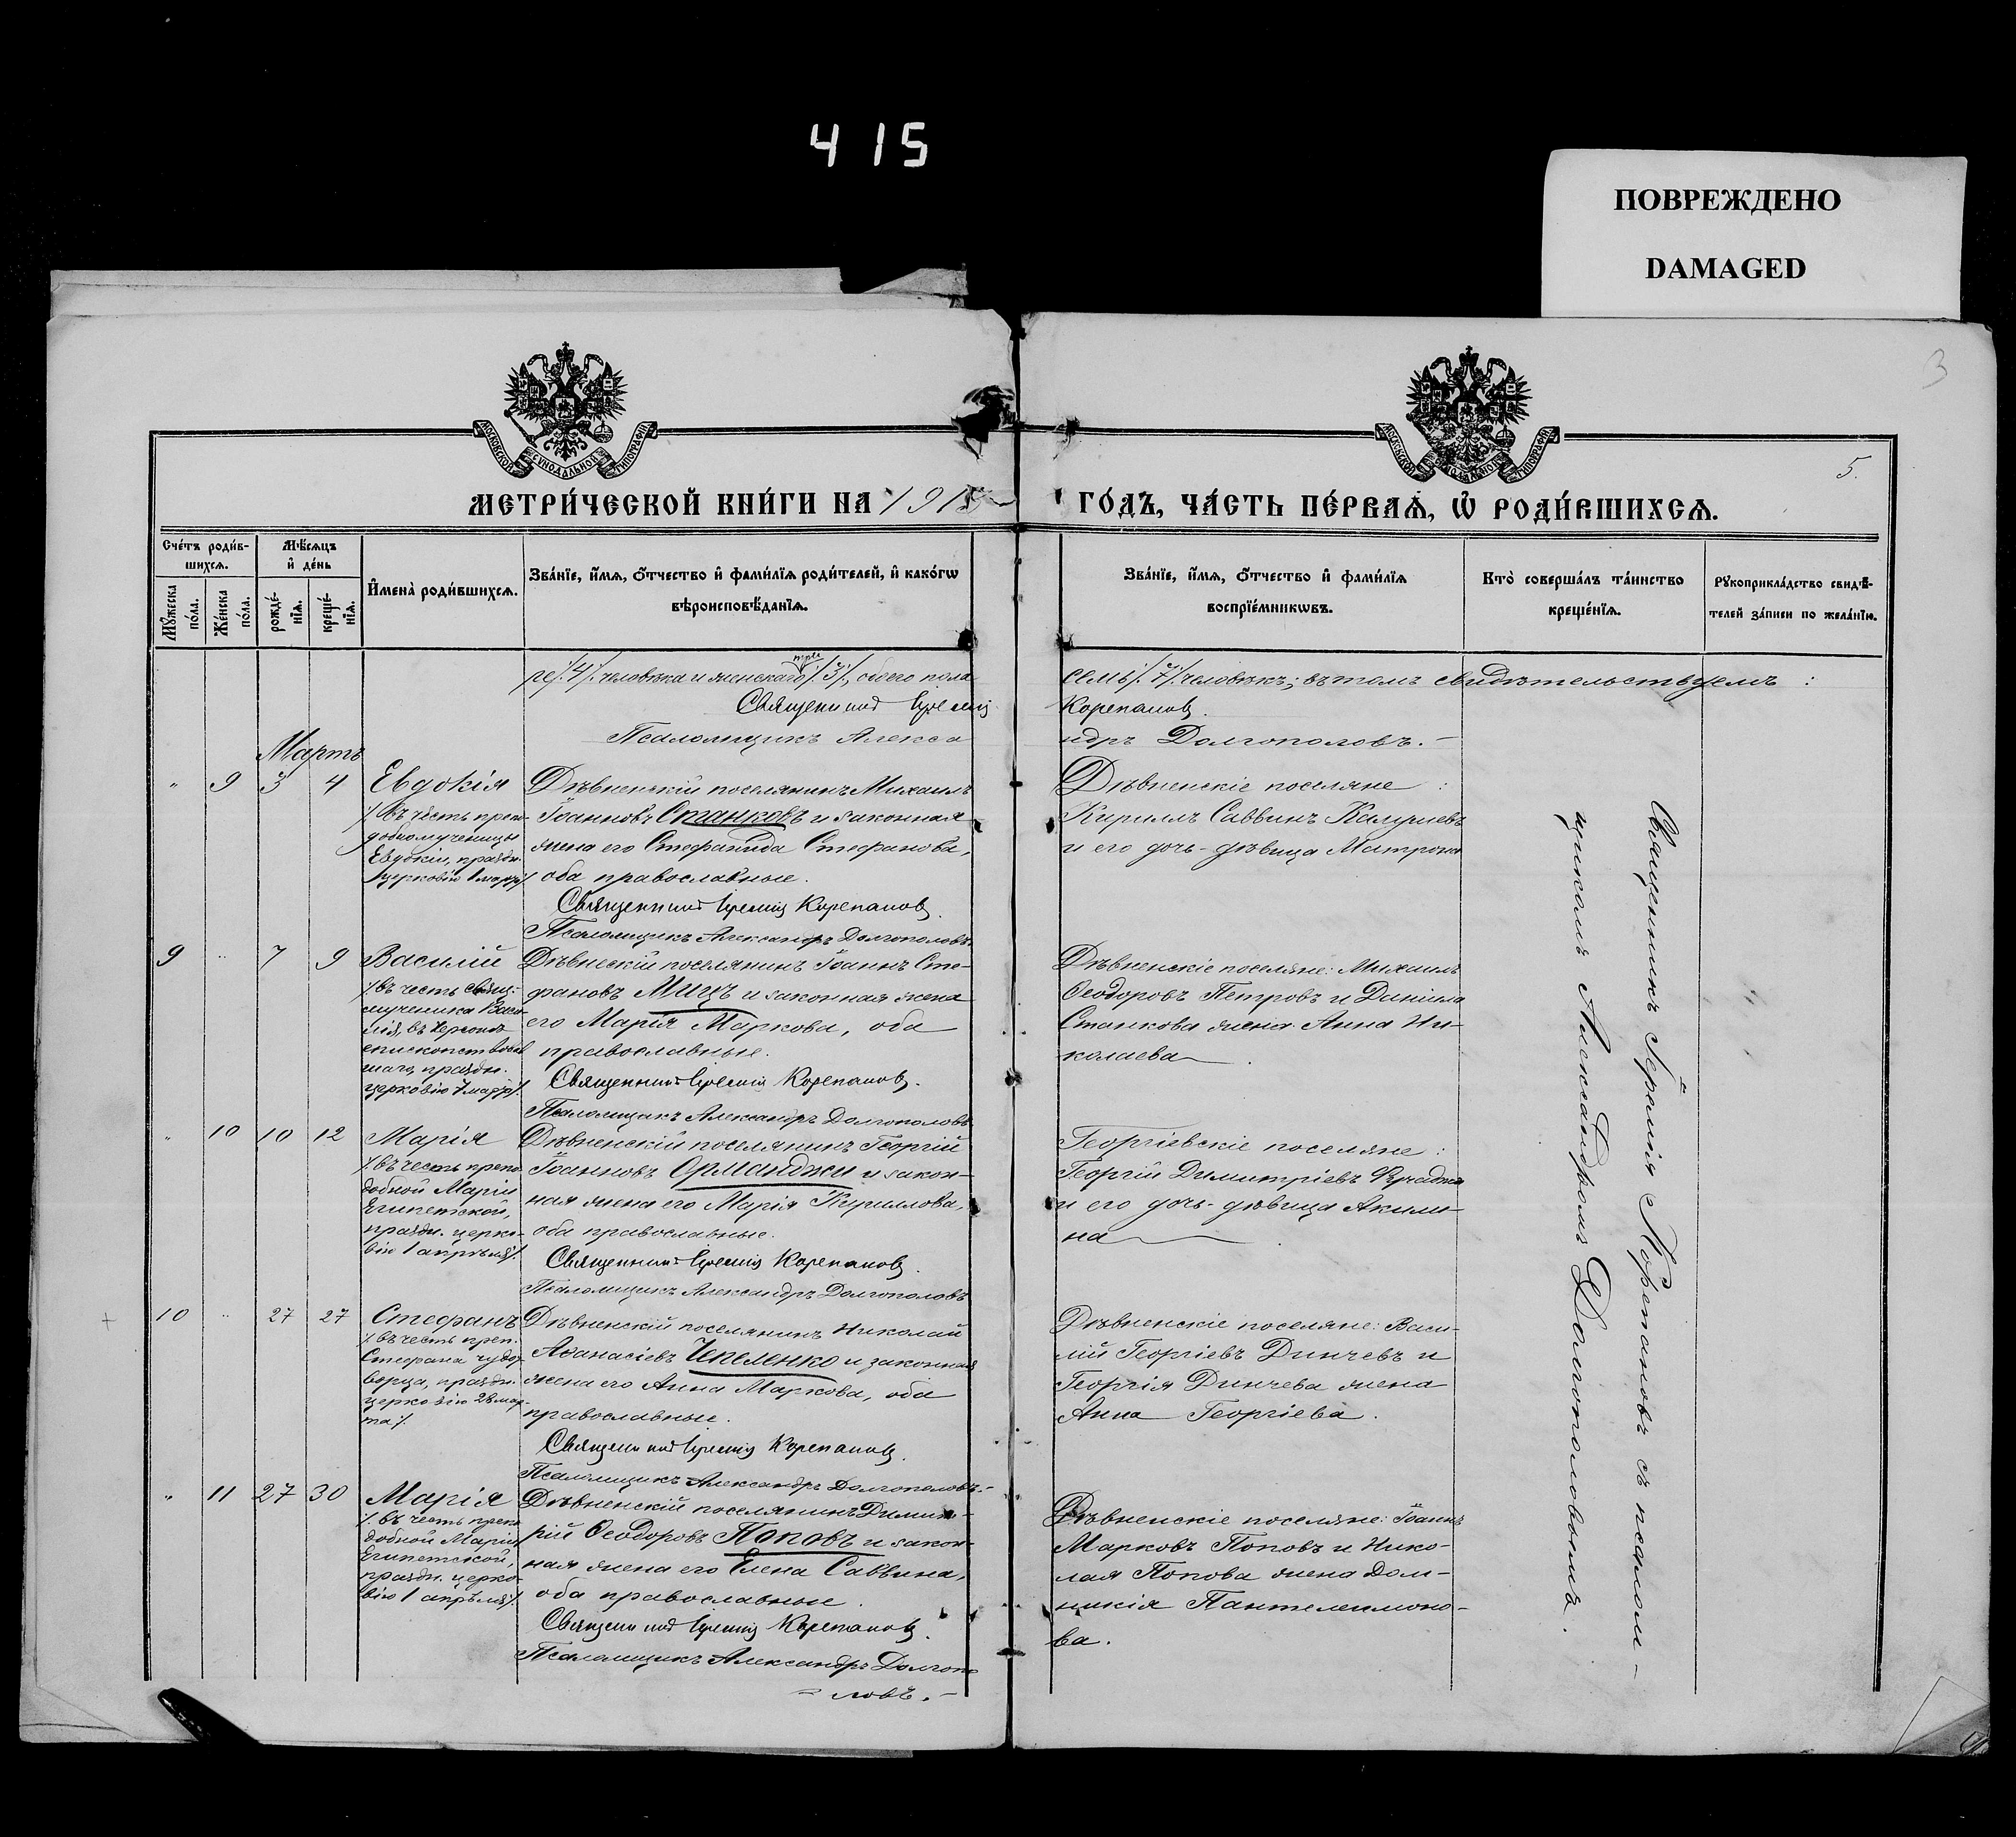 415
ПОВРЕЖДЕНО
DAMAGED
3
5.
МОСКОВСКОЙ СѴНОДАЛЬНОЙ ТИПОГРАФІИ
МЕТРИ́ЧЕСКОЙ КНИ́ГИ НА 191
ГО́ДЪ, ЧА́СТЬ ПЕ́РВАѦ, Ѡ҆ РОДИ́ВШИХСѦ.
Сче́тъ роди́в-
шихсѧ.
Мꙋжеска по́ла.
Же́нска по́ла.
Мѣ́сѧцъ
и҆ де́нь
рожде́-
нїѧ.
креще́-
нїѧ.
И҆мена̀ роди́вшихсѧ.
Зва́нїе, и҆́мѧ, ѻ҆́тчество и҆ фами́лїѧ роди́телей, и҆ како́гѡ
вѣроисповѣ́данїѧ.
Зва́нїе, и҆́мѧ, ѻ҆́тчество и҆ фами́лїѧ
воспрїе́мникѡвъ.
Кто̀ соверша́лъ та́инство
креще́нїѧ.
Рꙋкоприкла́дство свидѣ́-
телей за́писи по жела́нїю.
ре /4/ человѣка и женскаго три /3/, обоего пола
семь /7/ человѣкъ; въ томъ свидѣтельствуемъ:
Священникъ Іеремія
Корепановъ.
Псаломщикъ Алекса
ндръ Долгополовъ.
Мартъ
" 9 3 4 Евдокія
/въ честь препо-
добномученицы
Евдокіи, праздн.
церковію 1 марта/
Дѣвненскій поселянинъ Михаилъ
Іоанновъ Станковъ и законная
жена его Стефанида Стефанова,
оба православные.
Священникъ Іеремія Корепановъ.
Псаломщикъ Александръ Долгополовъ.
Дѣвненскіе поселяне:
Кириллъ Саввинъ
и его дочь-дѣвица Матрона
9 " 7 9 Василій
/въ честь свящ.
мученика Васи-
лія, въ Херсонѣ
епископствовав
шаго, праздн.
церковію 7 марта/
Дѣвнескій поселянинъ Іоаннъ Сте-
фановъ Мицъ и законная жена
его Марія Маркова, оба
православные.
Священникъ Іеремія Корепановъ.
Псаломщикъ Александръ Долгополовъ
Дѣвненскіе поселяне: Михаилъ
Ѳеодоровъ Петровъ и Даніила
Станкова жена Анна Ни-
колаева.
" 10 10 12 Марія
/въ честь препо
добной Маріи
Египетской,
праздн. церко-
вію 1 апрѣля/
Дѣвненскій поселянинъ Георгій
Іоанновъ Орманджи и закон-
ная жена его Марія Кириллова,
оба православные.
Священникъ Іеремія Корепановъ.
Псаломщикъ Александръ Долгополовъ
Георгіевскіе поселяне:
Георгій Димитріевъ
и его дочь-дѣвица Акили-
на.
+ 10 " 27 27 Стефанъ
/въ честь преп.
Стефана чудот
ворца, праздн.
церковію 28 мар-
та/
Дѣвненскій поселянинъ Николай
Аѳанасіевъ Чепеленко и законная
жена его Анна Маркова, оба
православные.
Священникъ Іеремія Корепановъ.
Псаломщикъ Александръ Долгополовъ.
Дѣвненскіе поселяне: Васи-
лій Георгіевъ Динчевъ и
Георгія Динчева жена
Анна Георгіева.
" 11 27 30 Марія
/въ честь препо
добной Маріи
Египетской,
праздн. церко-
вію 1 апрѣля/
Дѣвненскій поселянинъ Димит-
рій Ѳеодоровъ Поповъ и закон-
ная жена его Елена Саввина,
оба православные.
Священникъ Іеремія Корепановъ.
Псаломщикъ Александръ Долгопо
ловъ.
Дѣвненскіе поселяне: Іоаннъ
Марковъ Поповъ и Нико-
лая Попова жена Дом-
никія Пантелеимоно-
ва.
Священникъ Іеремія Корепановъ съ псалом-
щикомъ Александромъ Долгополовымъ.